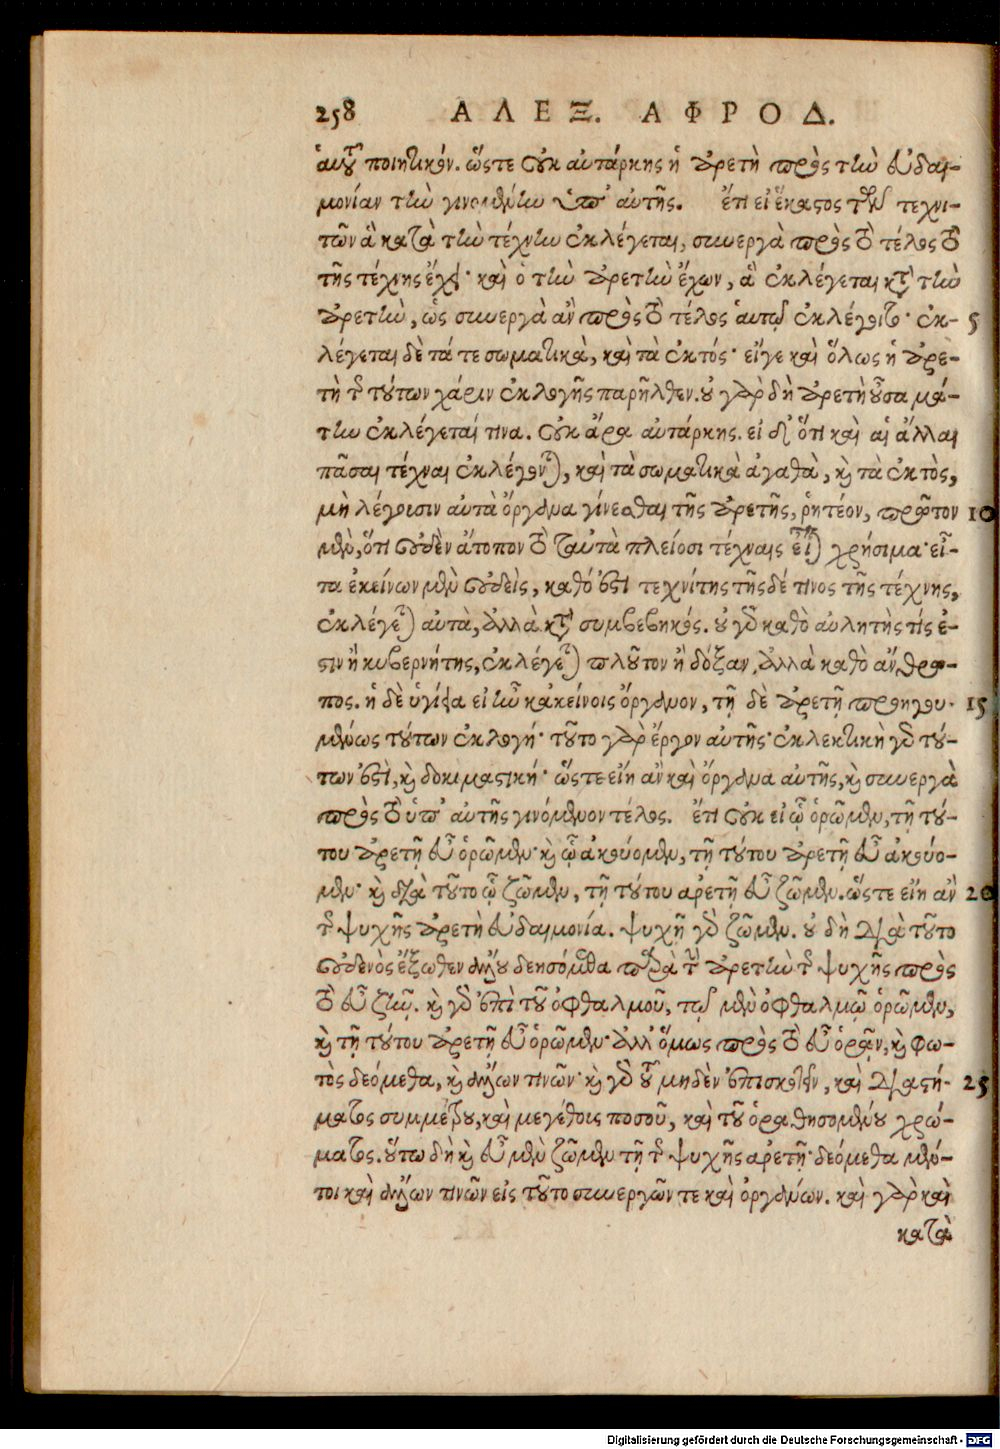 258 ΑΛΕΞ. ΑΦΡΟΔ.
αὑτοῦ ποιητικόν. ὥστε οὐκ αὐτάρκης ἡ ἀρετὴ πρὸς τὴν εὐδαι-
μονίαν τὴν γινομένην ὑπ' αὐτῆς. ἔτι εἰ ἕκαστος τῶν τεχνι-
τῶν ἃ κατὰ τὴν τέχνην ἐκλέγεται, συνεργὰ πρὸς τὸ τέλος τὸ
τῆς τέχνης ἔχει· καὶ ὁ τὴν ἀρετὴν ἔχων, ἃ ἐκλέγεται κατὰ τὴν
ἀρετὴν, ὡς συνεργὰ ἂν πρὸς τὸ τέλος αὑτῷ ἐκλέγοιτο· ἐκ- 5
λέγεται δὲ τά τε σωματικὰ, καὶ τὰ ἐκτός· εἴγε καὶ ὅλως ἡ ἀρε-
τὴ τῆς τούτων χάριν ἐκλογῆς παρῆλθεν. οὐ γὰρ δὴ ἀρετὴ οὖσα μά-
την ἐκλέγεταί τινα. οὐκ ἄρα αὐτάρκης. εἰ δ' ὅτι καὶ αἱ ἄλλαι
πᾶσαι τέχναι ἐκλέγονται, καὶ τὰ σωματικὰ ἀγαθὰ, καὶ τὰ ἐκτὸς,
μὴ λέγοισιν αὐτὰ ὄργανα γίνεσθαι τῆς ἀρετῆς, ῥητέον, πρῶτον 10
μὲν, ὅτι οὐδὲν ἄτοπον τὸ ταὐτὰ πλείοσι τέχναις εἶναι χρήσιμα· εἶ-
τα ἐκείνων μὲν οὐδεὶς, καθό ἐστι τεχνίτης τῆσδέ τινος τῆς τέχνης,
ἐκλέγεται αὐτὰ, ἀλλὰ κατὰ συμβεβηκός. οὐ γὰρ καθὸ αὐλητὴς τίς ἐ-
στιν ἢ κυβερνήτης, ἐκλέγεται πλοῦτον ἢ δόξαν, ἀλλὰ καθὸ ἄνθρω-
πος. ἡ δὲ ὑγίεια εἰ ἦν κἀκείνοις ὄργανον, τῇ δὲ ἀρετῇ προηγου- 15
μένως τούτων ἐκλογή· τοῦτο γὰρ ἔργον αὐτῆς· ἐκλεκτικὴ γὰρ τού-
των ἐστὶ, καὶ δοκιμαστική· ὥστε εἴη ἂν καὶ ὄργανα αὐτῆς, καὶ συνεργὰ
πρὸς τὸ ὑπ' αὐτῆς γινόμενον τέλος. ἔτι οὐκ εἰ ᾧ ὁρῶμεν, τῇ τού-
του ἀρετῇ εὖ ὁρῶμεν· καὶ ᾧ ἀκούομεν, τῇ τούτου ἀρετῇ εὖ ἀκούο-
μεν· καὶ διὰ τοῦτο ᾧ ζῶμεν, τῇ τούτου ἀρετῇ εὖ ζῶμεν. ὥστε εἴη ἂν 20
τῆς ψυχῆς ἀρετὴ εὐδαιμονία. ψυχῇ γὰρ ζῶμεν. οὐ δὴ διὰ τοῦτο
οὐδενὸς ἔξωθεν ἄλλου δεησόμεθα παρὰ τὴν ἀρετὴν τῆς ψυχῆς πρὸς
τὸ εὖ ζῆν. καὶ γὰρ ἐπὶ τοῦ ὀφθαλμοῦ, τῷ μὲν ὀφθαλμῷ ὁρῶμεν,
καὶ τῇ τούτου ἀρετῇ εὖ ὁρῶμεν· ἀλλ' ὅμως πρὸς τὸ εὖ ὁρᾷν, καὶ φω-
τὸς δεόμεθα, καὶ ἄλλων τινῶν· καὶ γὰρ τοῦ μηδὲν ἐπισκοτεῖν, καὶ διαστή- 25
ματος συμμέτρου, καὶ μεγέθους ποσοῦ, καὶ τοῦ ὁραθησομένου χρώ-
ματος. οὕτω δὴ καὶ εὖ μὲν ζῶμεν τῇ τῆς ψυχῆς ἀρετῇ· δεόμεθα μέν-
τοι καὶ ἄλλων τινῶν εἰς τοῦτο συνεργῶν τε καὶ ὀργάνων. καὶ γὰρ καὶ
κατὰ
Digitalisierung gefördert durch die Deutsche Forschungsgemeinschaft - DFG